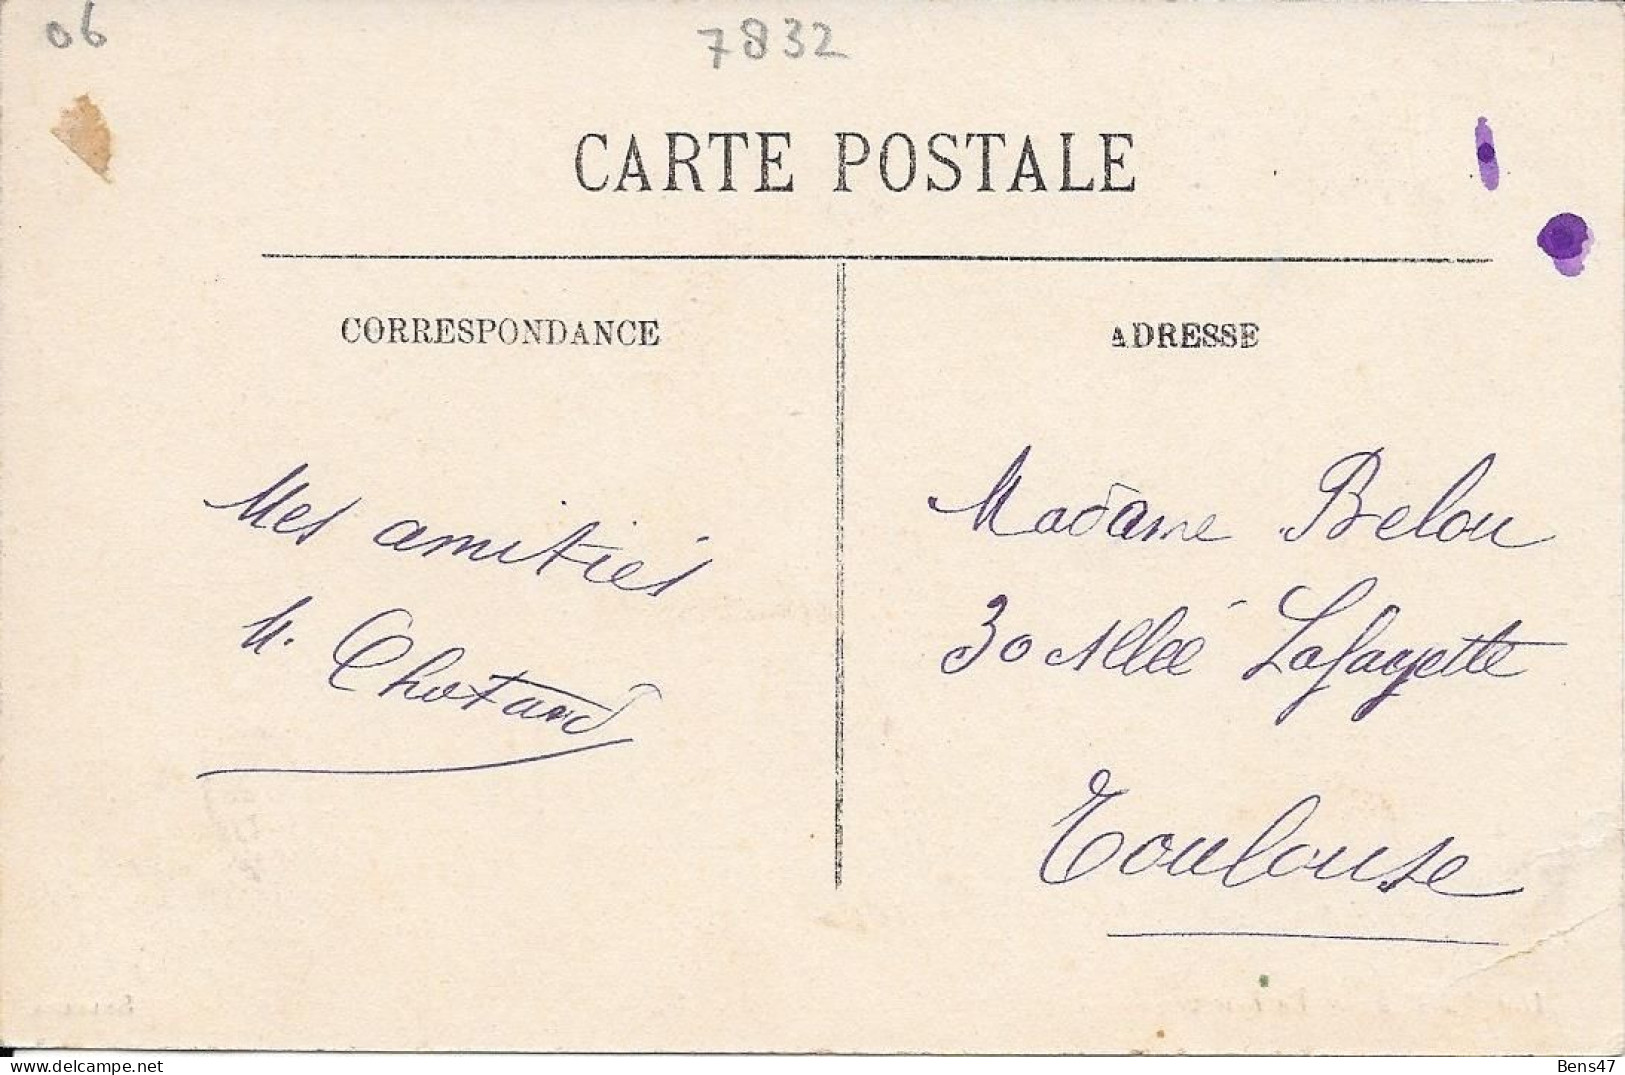 06
7832
CARTE POSTALE
CORRESPONDANCE
ADRESSE
Mes amitiés
M. Chotard
Madame Belou
30 Allée Lafayette
Toulouse
delcampe.net
Bens47